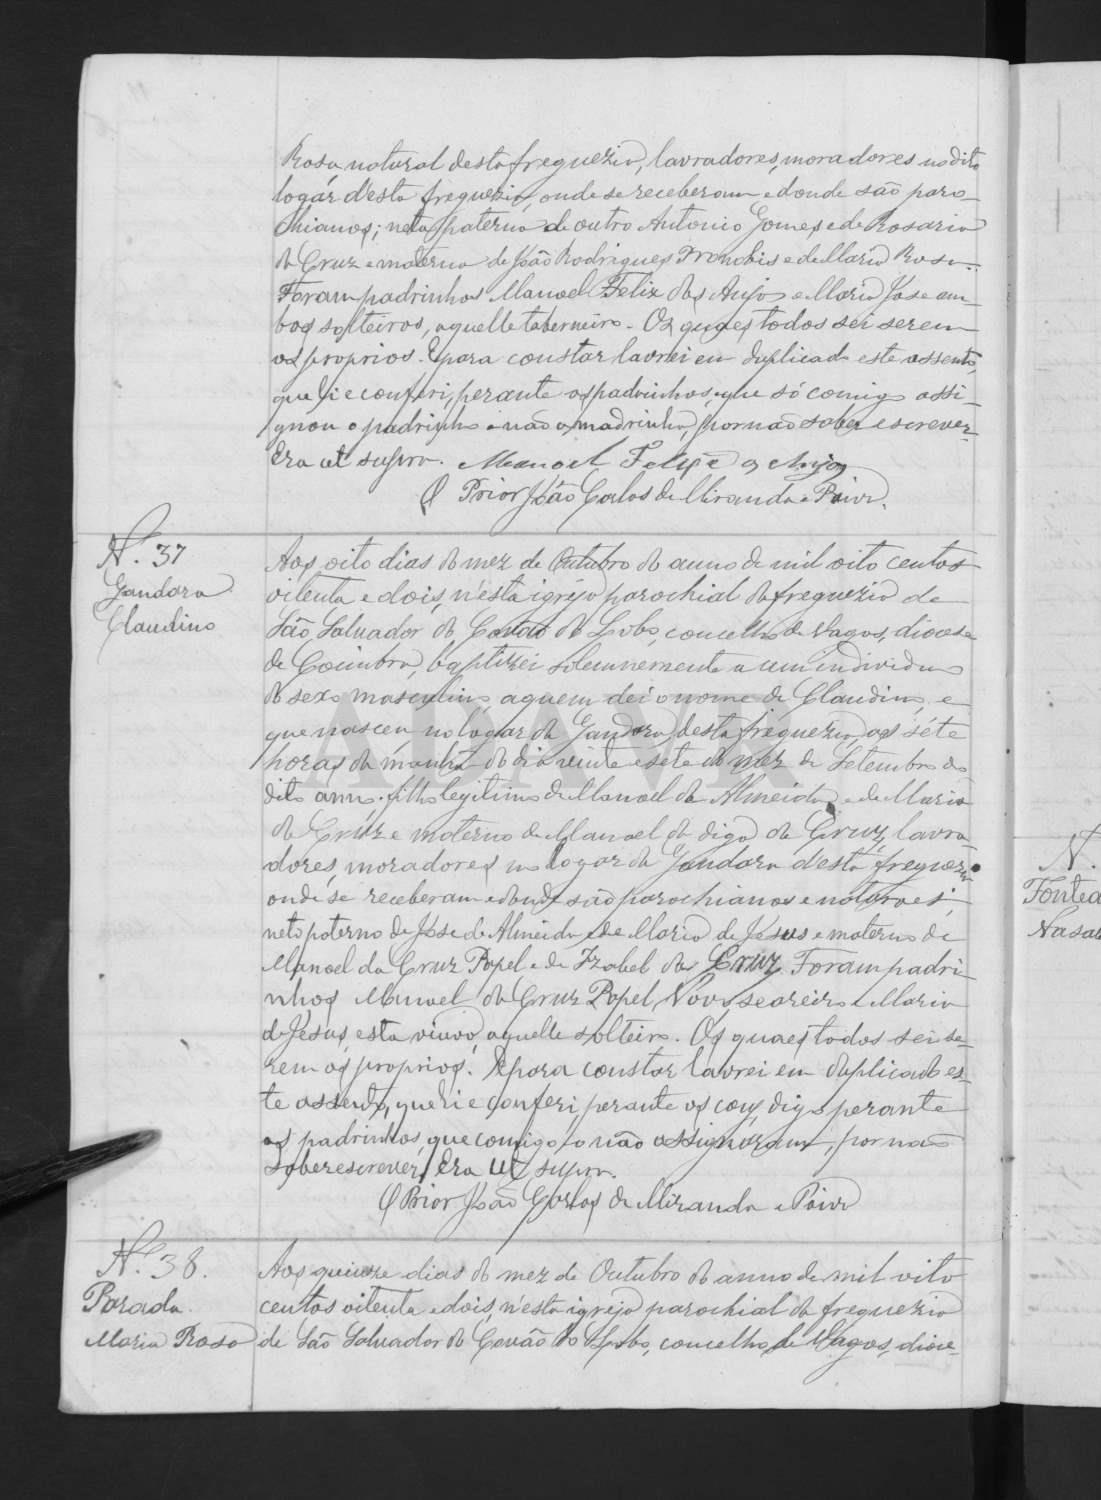 Rosa, natural desta freguezia, lavradores, moradores no dito
logar d'esta freguezia, onde se receberam e donde são paro-
chianos; neta paterna de outro Antonio Gomes e de Rosaria
da Cruz e materna de João Rodrigues Tronobis e de Maria Rosa.
Foram padrinhos Manoel Felix dos Anjos e Maria José am-
bos solteiros, aquelle taberneiro. Os quaes todos sei serem
os proprios. E para constar lavrei em duplicado este assento,
que li e conferi, perante os padrinhos, que só comigo assi-
gnou o padrinho e não a madrinha, por não saber escrever.
Era ut supra. Manoel Felix dos Anjos
O Prior João Carlos de Miranda e Paiva.
N.º 37
Gandara
Claudino
Aos oito dias do mez de Outubro do anno de mil oito centos
oitenta e dois, n'esta igreja parochial da freguezia de
São Salvador do Covão do Lobo, concelho de Vagos, diocese
de Coimbra, baptizei solemnemente a um individuo
do sexo masculino, a quem dei o nome de Claudino, e
que nasceu no logar da Gandara, desta freguezia, ás séte
horas da manhã do dia vinte e sete do mez de Setembro do
dito anno. filho legitimo de Manoel de Almeida, e de Maria
da Cruz e materno de Manoel da digo da Cruz, lavra-
dores, moradores no logar da Gandara d'esta freguezia
onde se receberam e donde são parochianos e naturaes;
neto paterno de José de Almeida e de Maria de Jesus e materno de
Manoel da Cruz Papel e de Izabel da Cruz. Foram padri-
nhos Manoel da Cruz Papel, Novo, seareiro e Maria
de Jesus, esta viuva, aquelle solteiro. Os quaes todos sei se-
rem os proprios. E para constar lavrei em duplicado es-
te assento, que li e conferi, perante os conj, digo perante
os padrinhos, que comigo o não assignáram, por não
saber escrever. Era ut supra.
O Prior João Carlos de Miranda e Paiva
N.º 38.
Parada
Maria Rosa
Aos quinze dias do mez de Outubro do anno de mil oito
centos oitenta e dois, n'esta igreja parochial da freguezia
de São Salvador do Covão do Lobo, concelho de Vagos, dioce-
N.
ADAVR